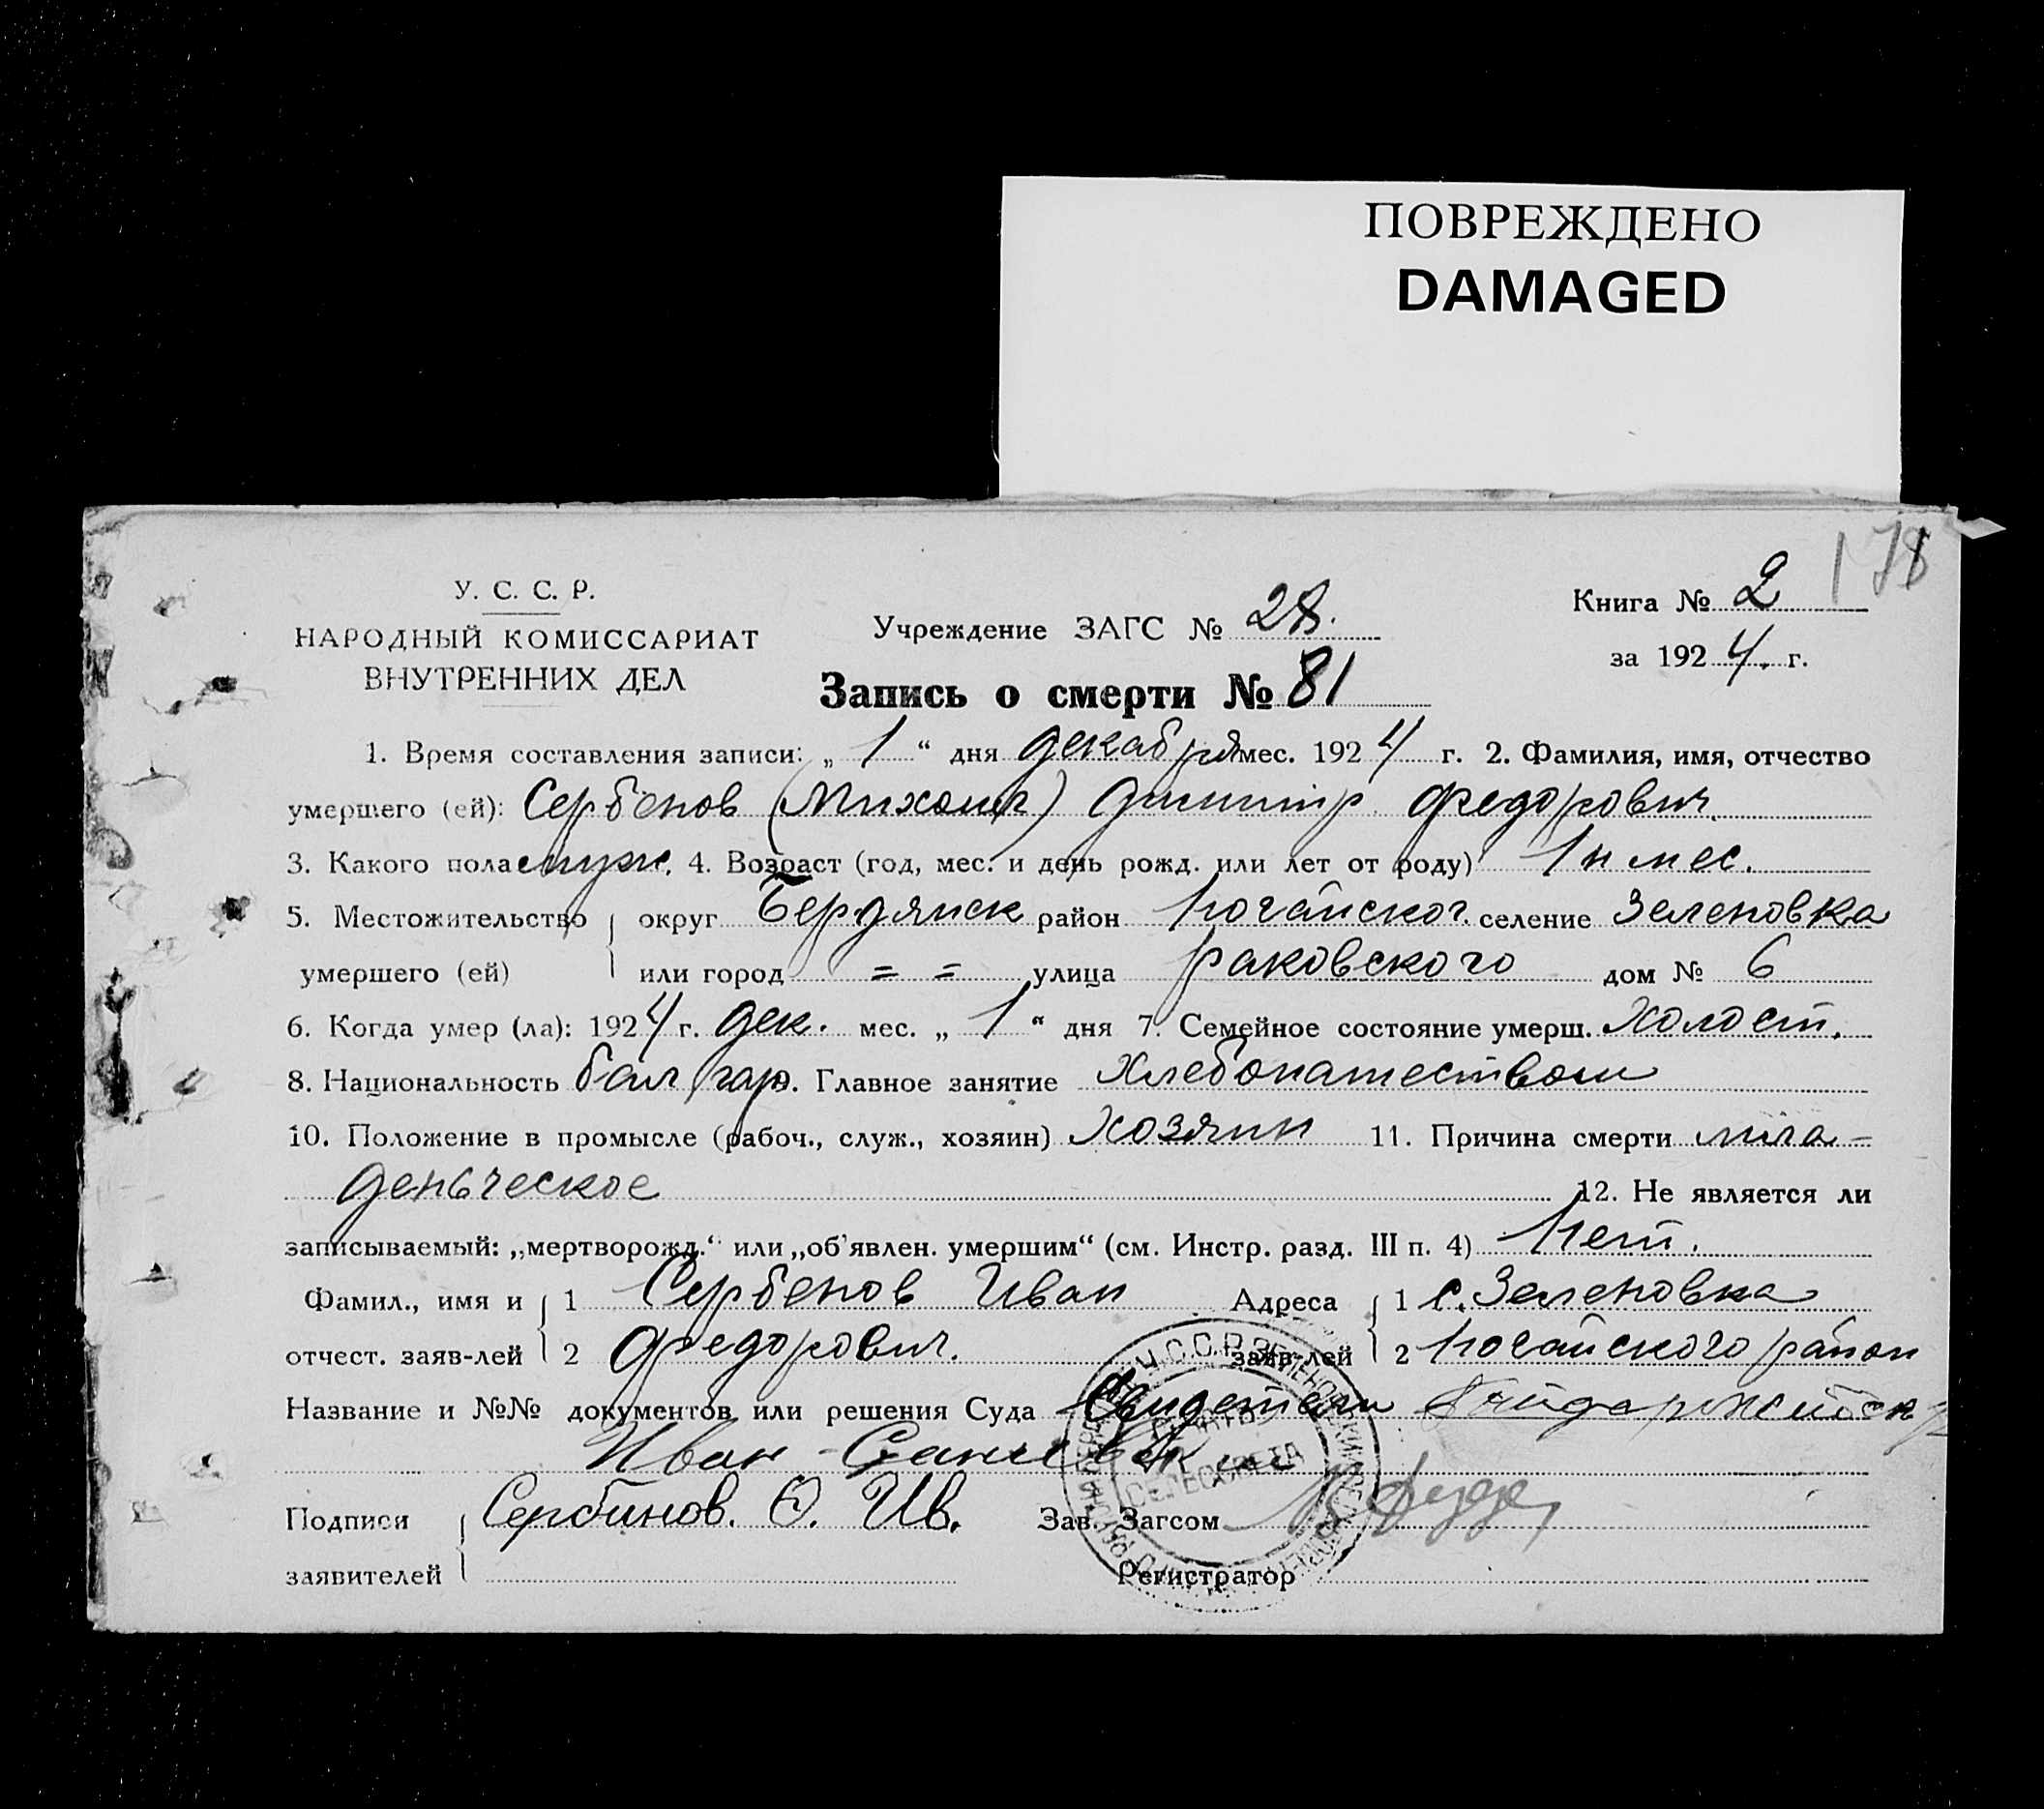 ПОВРЕЖДЕНО
DAMAGED
178
У. С. С. Р.
НАРОДНЫЙ КОМИССАРИАТ
ВНУТРЕННИХ ДЕЛ
Учреждение ЗАГС № 28.
Книга № 2
за 1924. г.
Запись о смерти № 81
1. Время составления записи: „ 1 “ дня декабря мес. 1924 г. 2. Фамилия, имя, отчество
умершего (ей): Сербенов (Михаил) Димитр. Федорович.
3. Какого пола муж. 4. Возраст (год, мес. и день рожд. или лет от роду) 1 мес.
5. Местожительство округ Бердянск район Ногайског. селение Зеленовка
умершего (ей) или город = = улица Раковского дом № 6
6. Когда умер (ла): 1924 г. дек. мес. „ 1 “ дня 7. Семейное состояние умерш. Холост.
8. Национальность болгар. Главное занятие Хлебопашеством
10. Положение в промысле (рабоч., служ., хозяин) хозяин 11. Причина смерти мла-
деньческое 12. Не является ли
записываемый: „мертворожд.“ или „об'явлен. умершим“ (см. Инстр. разд. III п. 4) Нет.
Фамил., имя и 1 Сербенов Иван Адреса 1 с. Зеленовка
отчест. заяв-лей 2 Федорович. заяв-лей 2 Ногайского район
Название и №№ документов или решения Суда Свидетели
Иван
Подписи Сербинов. Ф. Ив. Зав. Загсом
заявителей Регистратор
У.С.С.Р.
СЕЛЬСОВЕТА